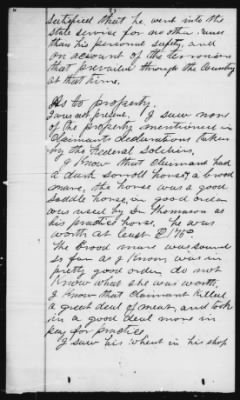 satisfied that he went into the
state service for no other cause
than his personal safety, and
on account of the terrorism
that prevailed through the Country
at that time.
As to property.
I was not present, I saw none
of the property mentioned in
Claimants declarations taken
by the Federal Soldiers,
I know that claimant had
a dark sorrell horse, & a brood
mare, the horse was a good
saddle horse, in good order
was used by Dr Thomason as
his practice horse he was
worth at least $1
The brood mare was sound
so far as I know, was in
pretty good order, do not
know what she was worth.
I know that claimant killed
a great deal of meat, and took
in a good deal more in
pay for practice.
I saw his wheat in his shop